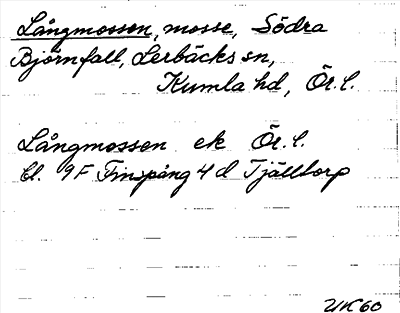 Långmossen, mosse, Södra
Björnfall, Lerbäcks sn,
Kumla hd, Ör. l.
Långmossen ek Ör. l.
bl. 9F Finspång 4d Tjälltorp
UK60